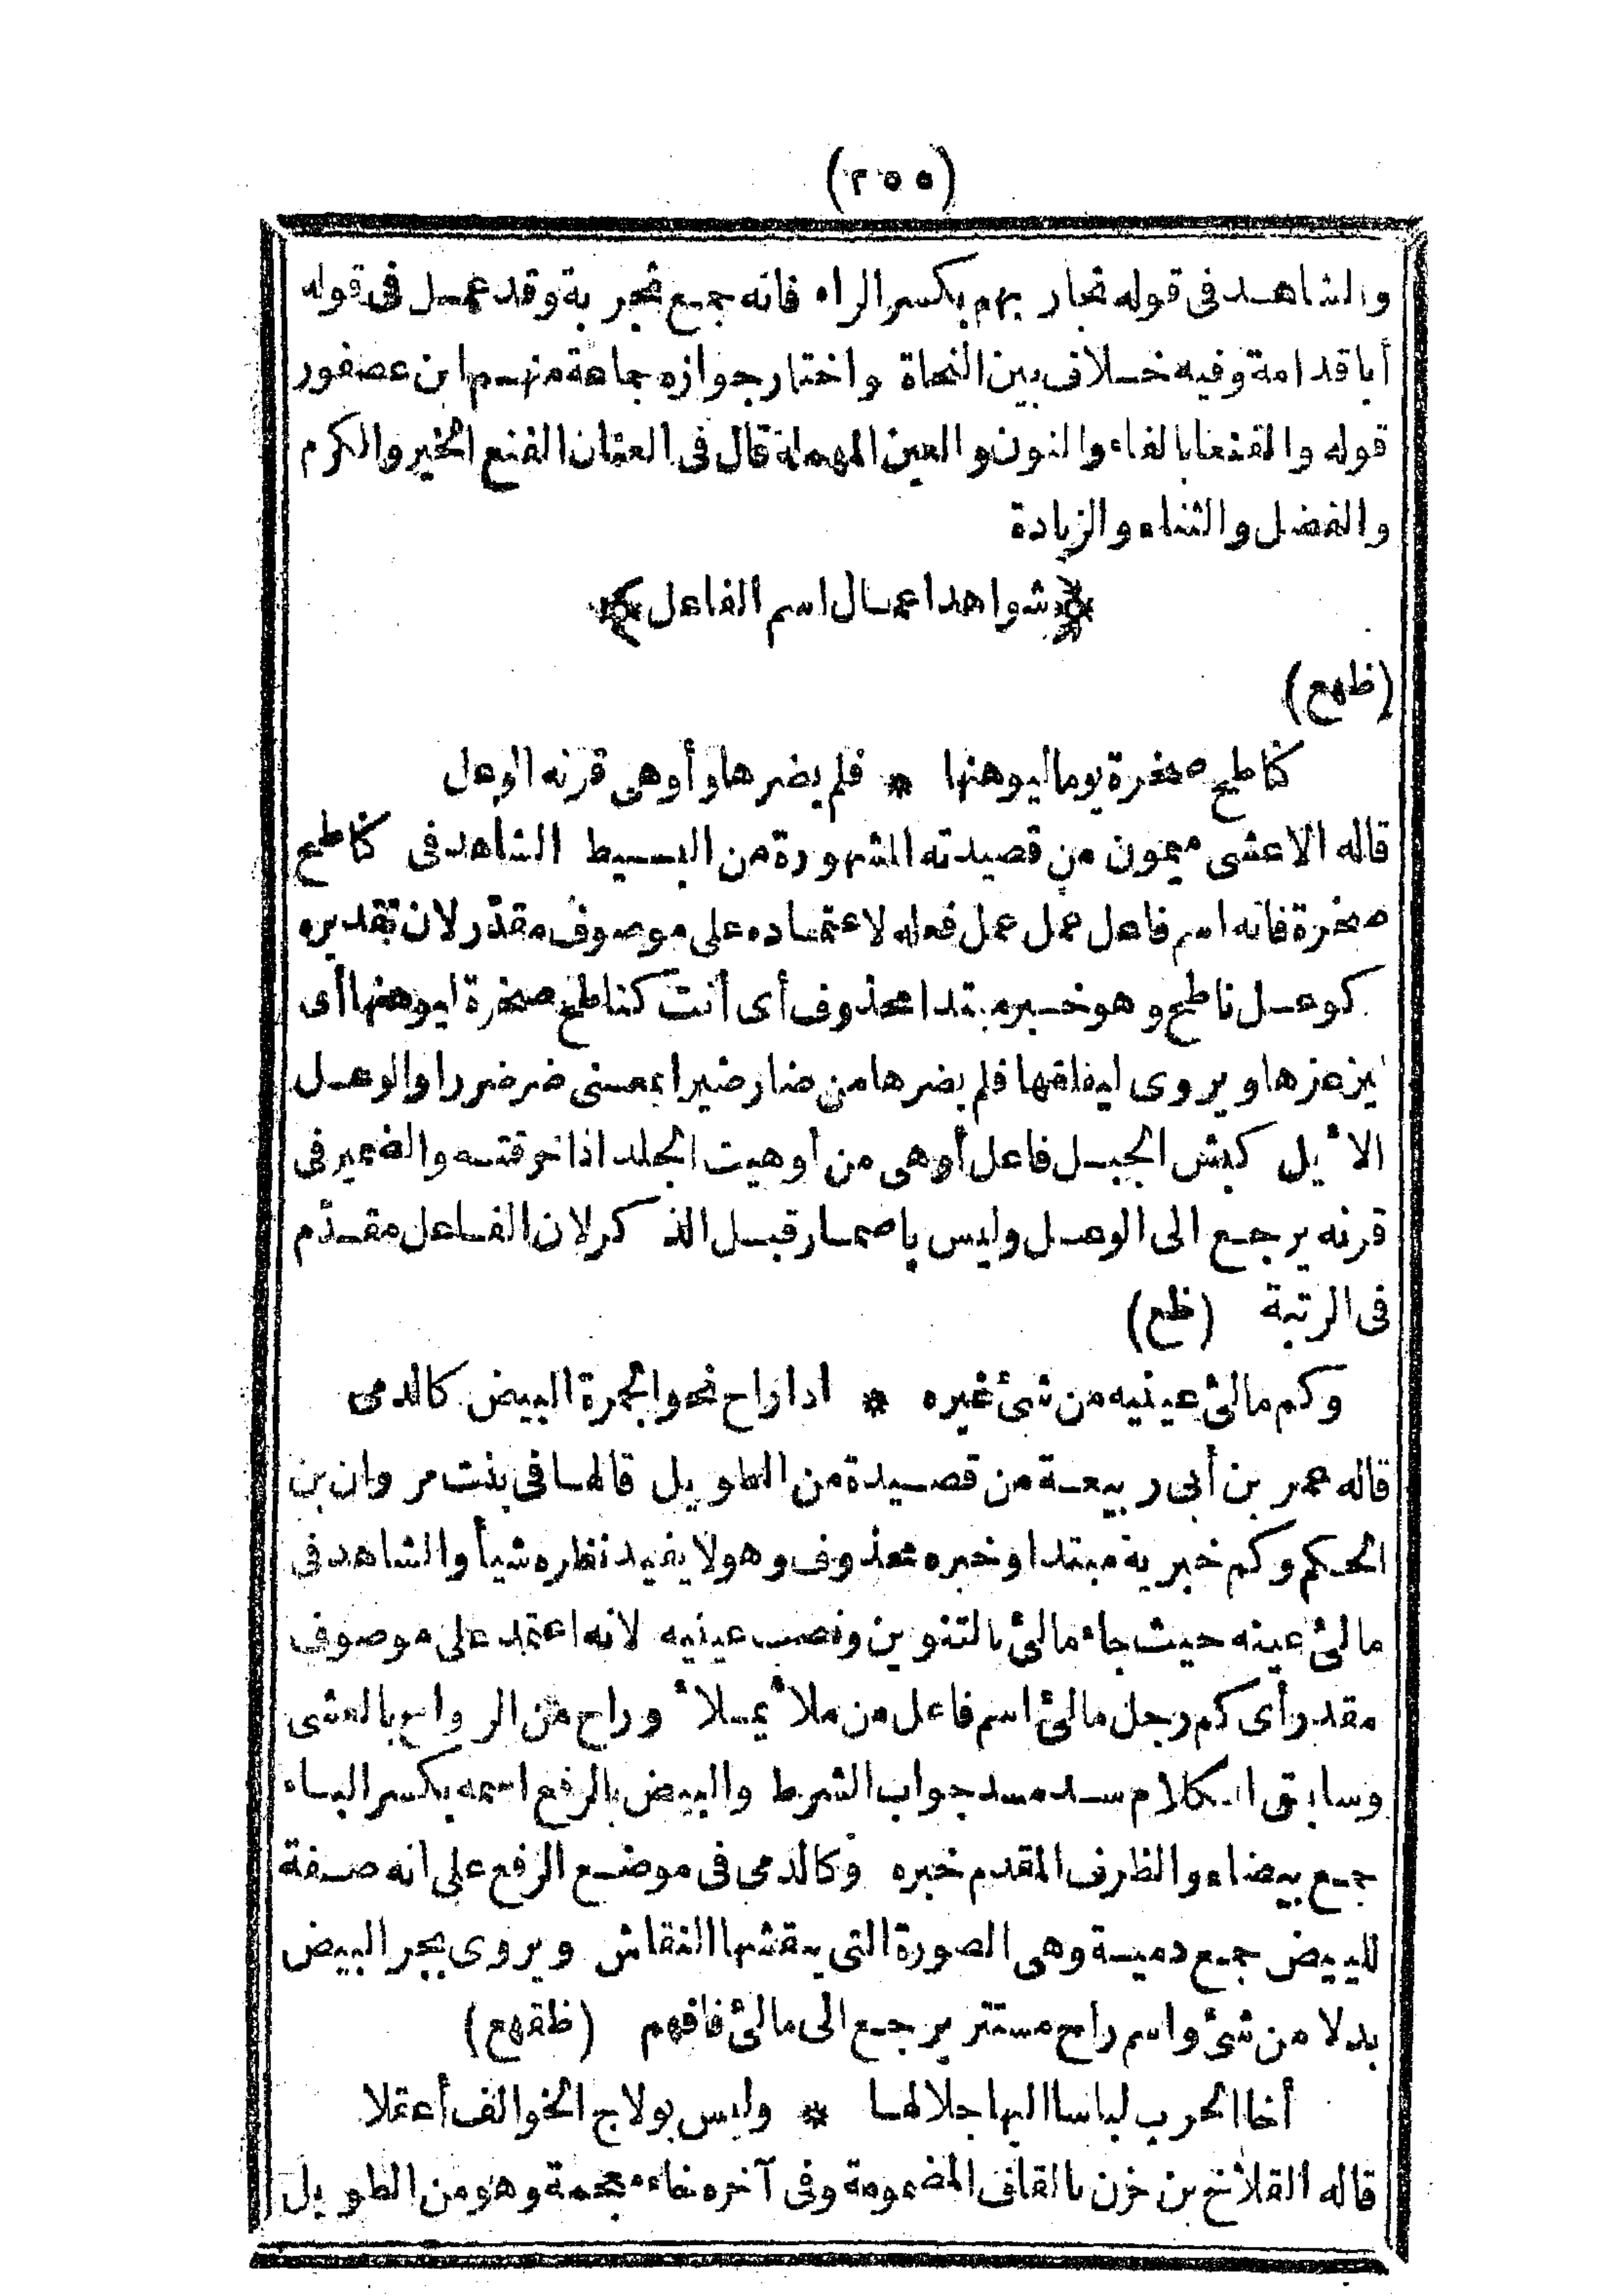 (٢٥٥)
والشاهد فى قوله تجار بهم بكسر الراء فانه جمع تجربة وقد عمل فى قوله
أبا قدامة وفيه خلاف بين النحاة واختار جوازه جماعة منهم ابن عصفور
قوله والفنعا بالفاء والنون والعين المهملة قال فى العتان الفنع الخير والكرم
والفضل والثناء والزيادة
﴿شواهد اعمال اسم الفاعل﴾
(ظهع)
كناطح صخرة يوما ليوهنها * فلم يضرها وأوهى قرنه الوعل
قاله الاعشى ميمون من قصيدته المشهورة من البسيط الشاهد فى كناطح
صخرة فانه اسم فاعل عمل عمل فعله لاعتماده على موصوف مقدّر لان تقديره
كوعل ناطح وهو خبر مبتدا محذوف أى أنت كناطح صخرة ليوهنها أى
ليزعزها ويروى ليفلقها فلم يضرها من ضار ضيرا بمعنى ضر ضررا والوعل
الأيل كبش الجبل فاعل أوهى من أوهيت الجلد اذا خرقته والضمير فى
قرنه يرجع الى الوعل وليس باضمار قبل الذكر لان الفاعل مقدّم
فى الرتبة (ظع)
وكم مالئ عينيه من شئ غيره * اذا راح نحو الجمرة البيض كالدمى
قاله عمر بن أبى ربيعة من قصيدة من الطويل قالها فى بنت مروان بن
الحكم وكم خبرية مبتدا وخبره محذوف وهو لا يفيد نظره شيأ والشاهد فى
مالئ عينه حيث جاء مالئ بالتنوين ونصب عينيه لانه اعتمد على موصوف
مقدر أى كم رجل مالئ اسم فاعل من ملأ يملأ وراح من الرواح بالعشى
وسابق الكلام سد مسد جواب الشرط والبيض بالرفع اسمه بكسر الباء
جمع بيضاء والظرف المقدم خبره وكالدمى فى موضع الرفع على انه صفة
للبيض جمع دمية وهى الصورة التى ينقشها النقاش ويروى بجر البيض
بدلا من شئ واسم راح مستتر يرجع الى مالئ فافهم (ظقهع)
أخا الحرب لباسا اليها جلالها * وليس بولاج الخوالف أعقلا
قاله القلاخ بن حزن بالقاف المضمومة وفى آخره خاء معجمة وهو من الطويل